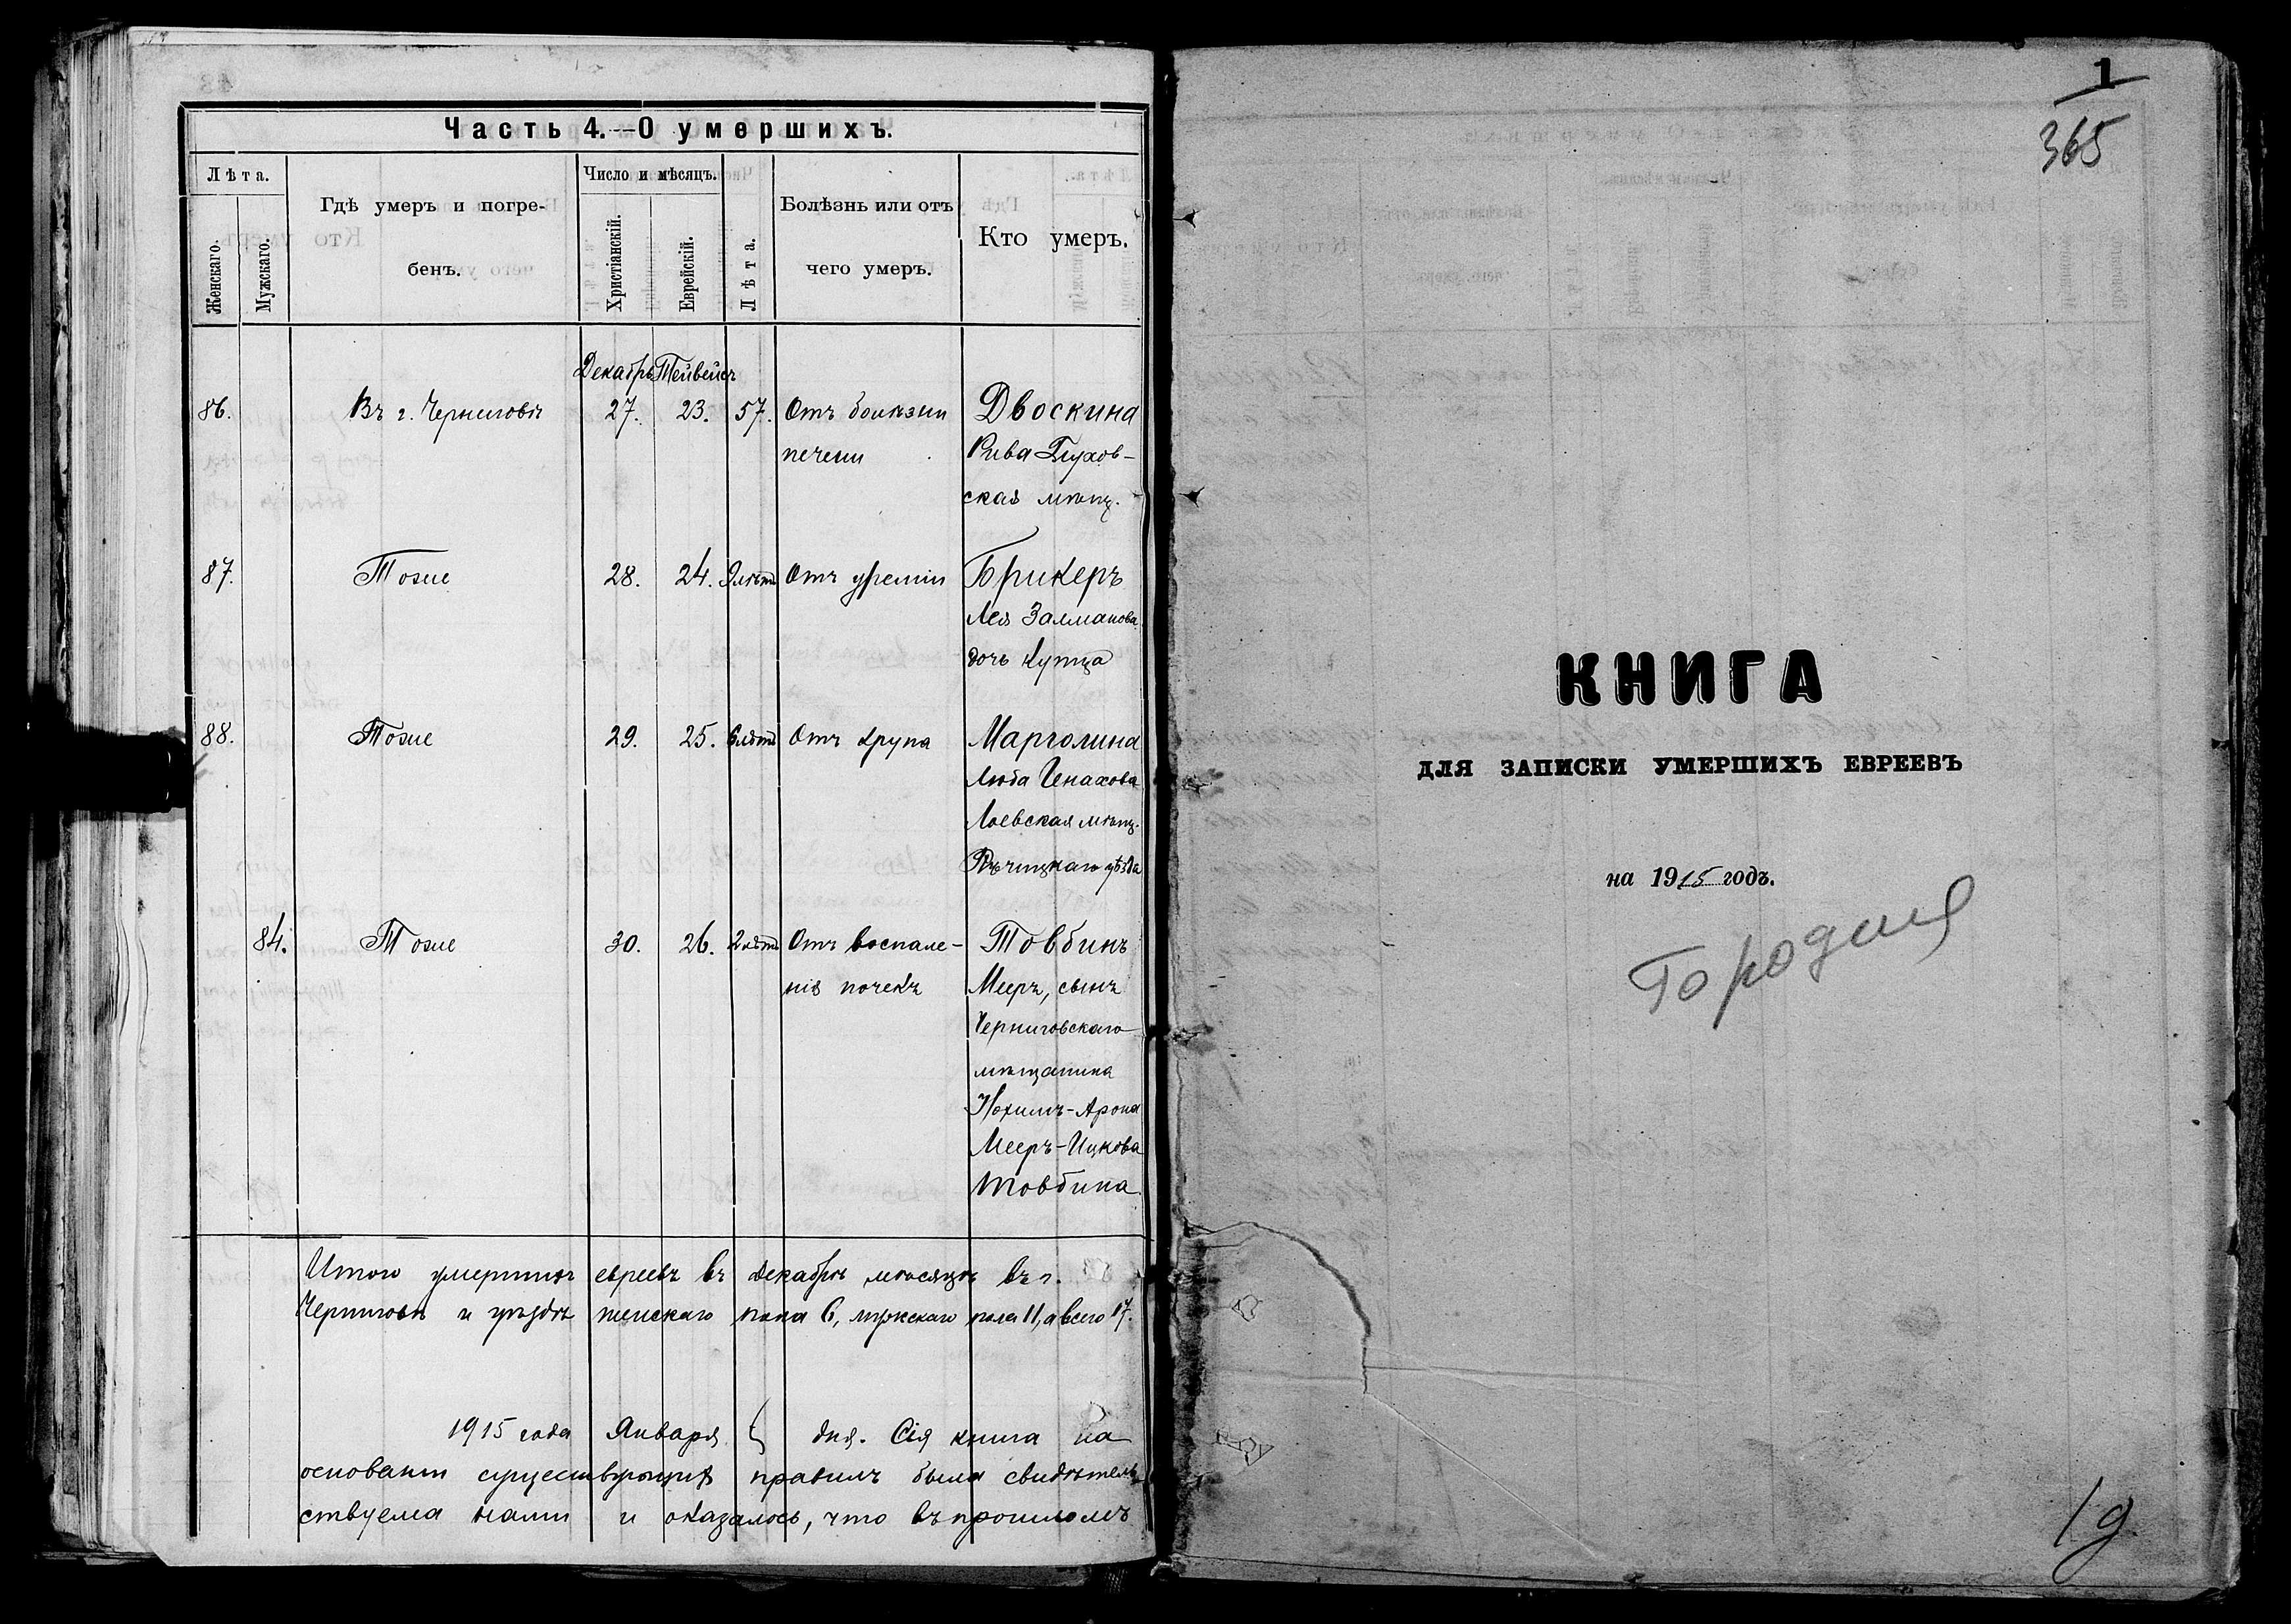 Часть 4.—О умершихъ.
Лѣта.
Женскаго.
Мужскаго.
Гдѣ умеръ и погре-
бенъ.
Число и мѣсяцъ.
Христіанскій.
Еврейскій.
Лѣта.
Болѣзнь или отъ
чего умеръ.
Кто умеръ.
Декабрь Тейвейсъ
86. Въ г. Черниговѣ 27. 23. 57. Отъ болѣзни Двоскина
печени Рива Глухов-
ская мѣщ.
87. Тоже 28. 24. 9 лѣтъ Отъ уреміи Брикеръ
Лея Залманова
дочь купца
88. Тоже 29. 25. 6 лѣтъ Отъ крупа Марголина
Люба Генахова
Лоевская мѣщ.
Рѣчицкаго уѣзда
84. Тоже 30. 26. 2 лѣтъ Отъ воспале- Товбинъ
нія почекъ Мееръ, сынъ
Черниговскаго
мѣщанина
Нохимъ-Арона
Мееръ-Ицкова
Товбина
Итого умершихъ евреевъ въ Декабрѣ мѣсяцѣ въ г.
Черниговѣ и уѣздѣ женскаго пола 6, мужскаго пола 11, а всего 17.
1915 года Января дня. Сія книга на
основаніи существующихъ правилъ была свидѣтель-
ствуема нами и оказалось, что въ прошломъ
1
365
КНИГА
ДЛЯ ЗАПИСКИ УМЕРШИХЪ ЕВРЕЕВЪ
на 1915 годъ.
Городня
19